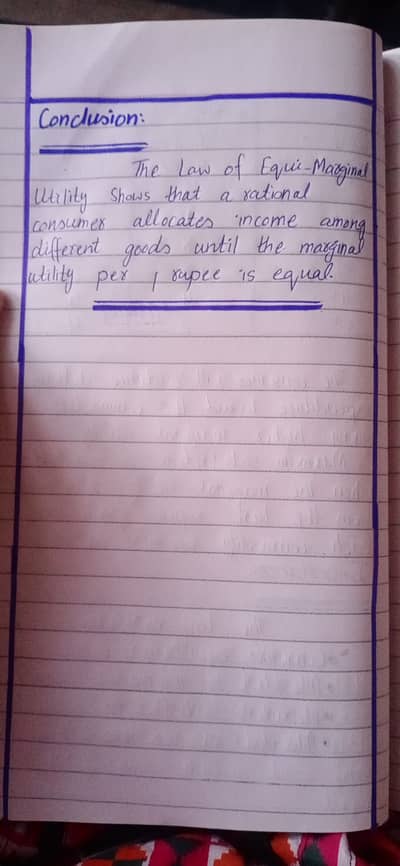 Conclusion:
The Law of Equi-Marginal
Utility shows that a rational
consumer allocates income among
different goods until the marginal
utility per 1 rupee is equal.